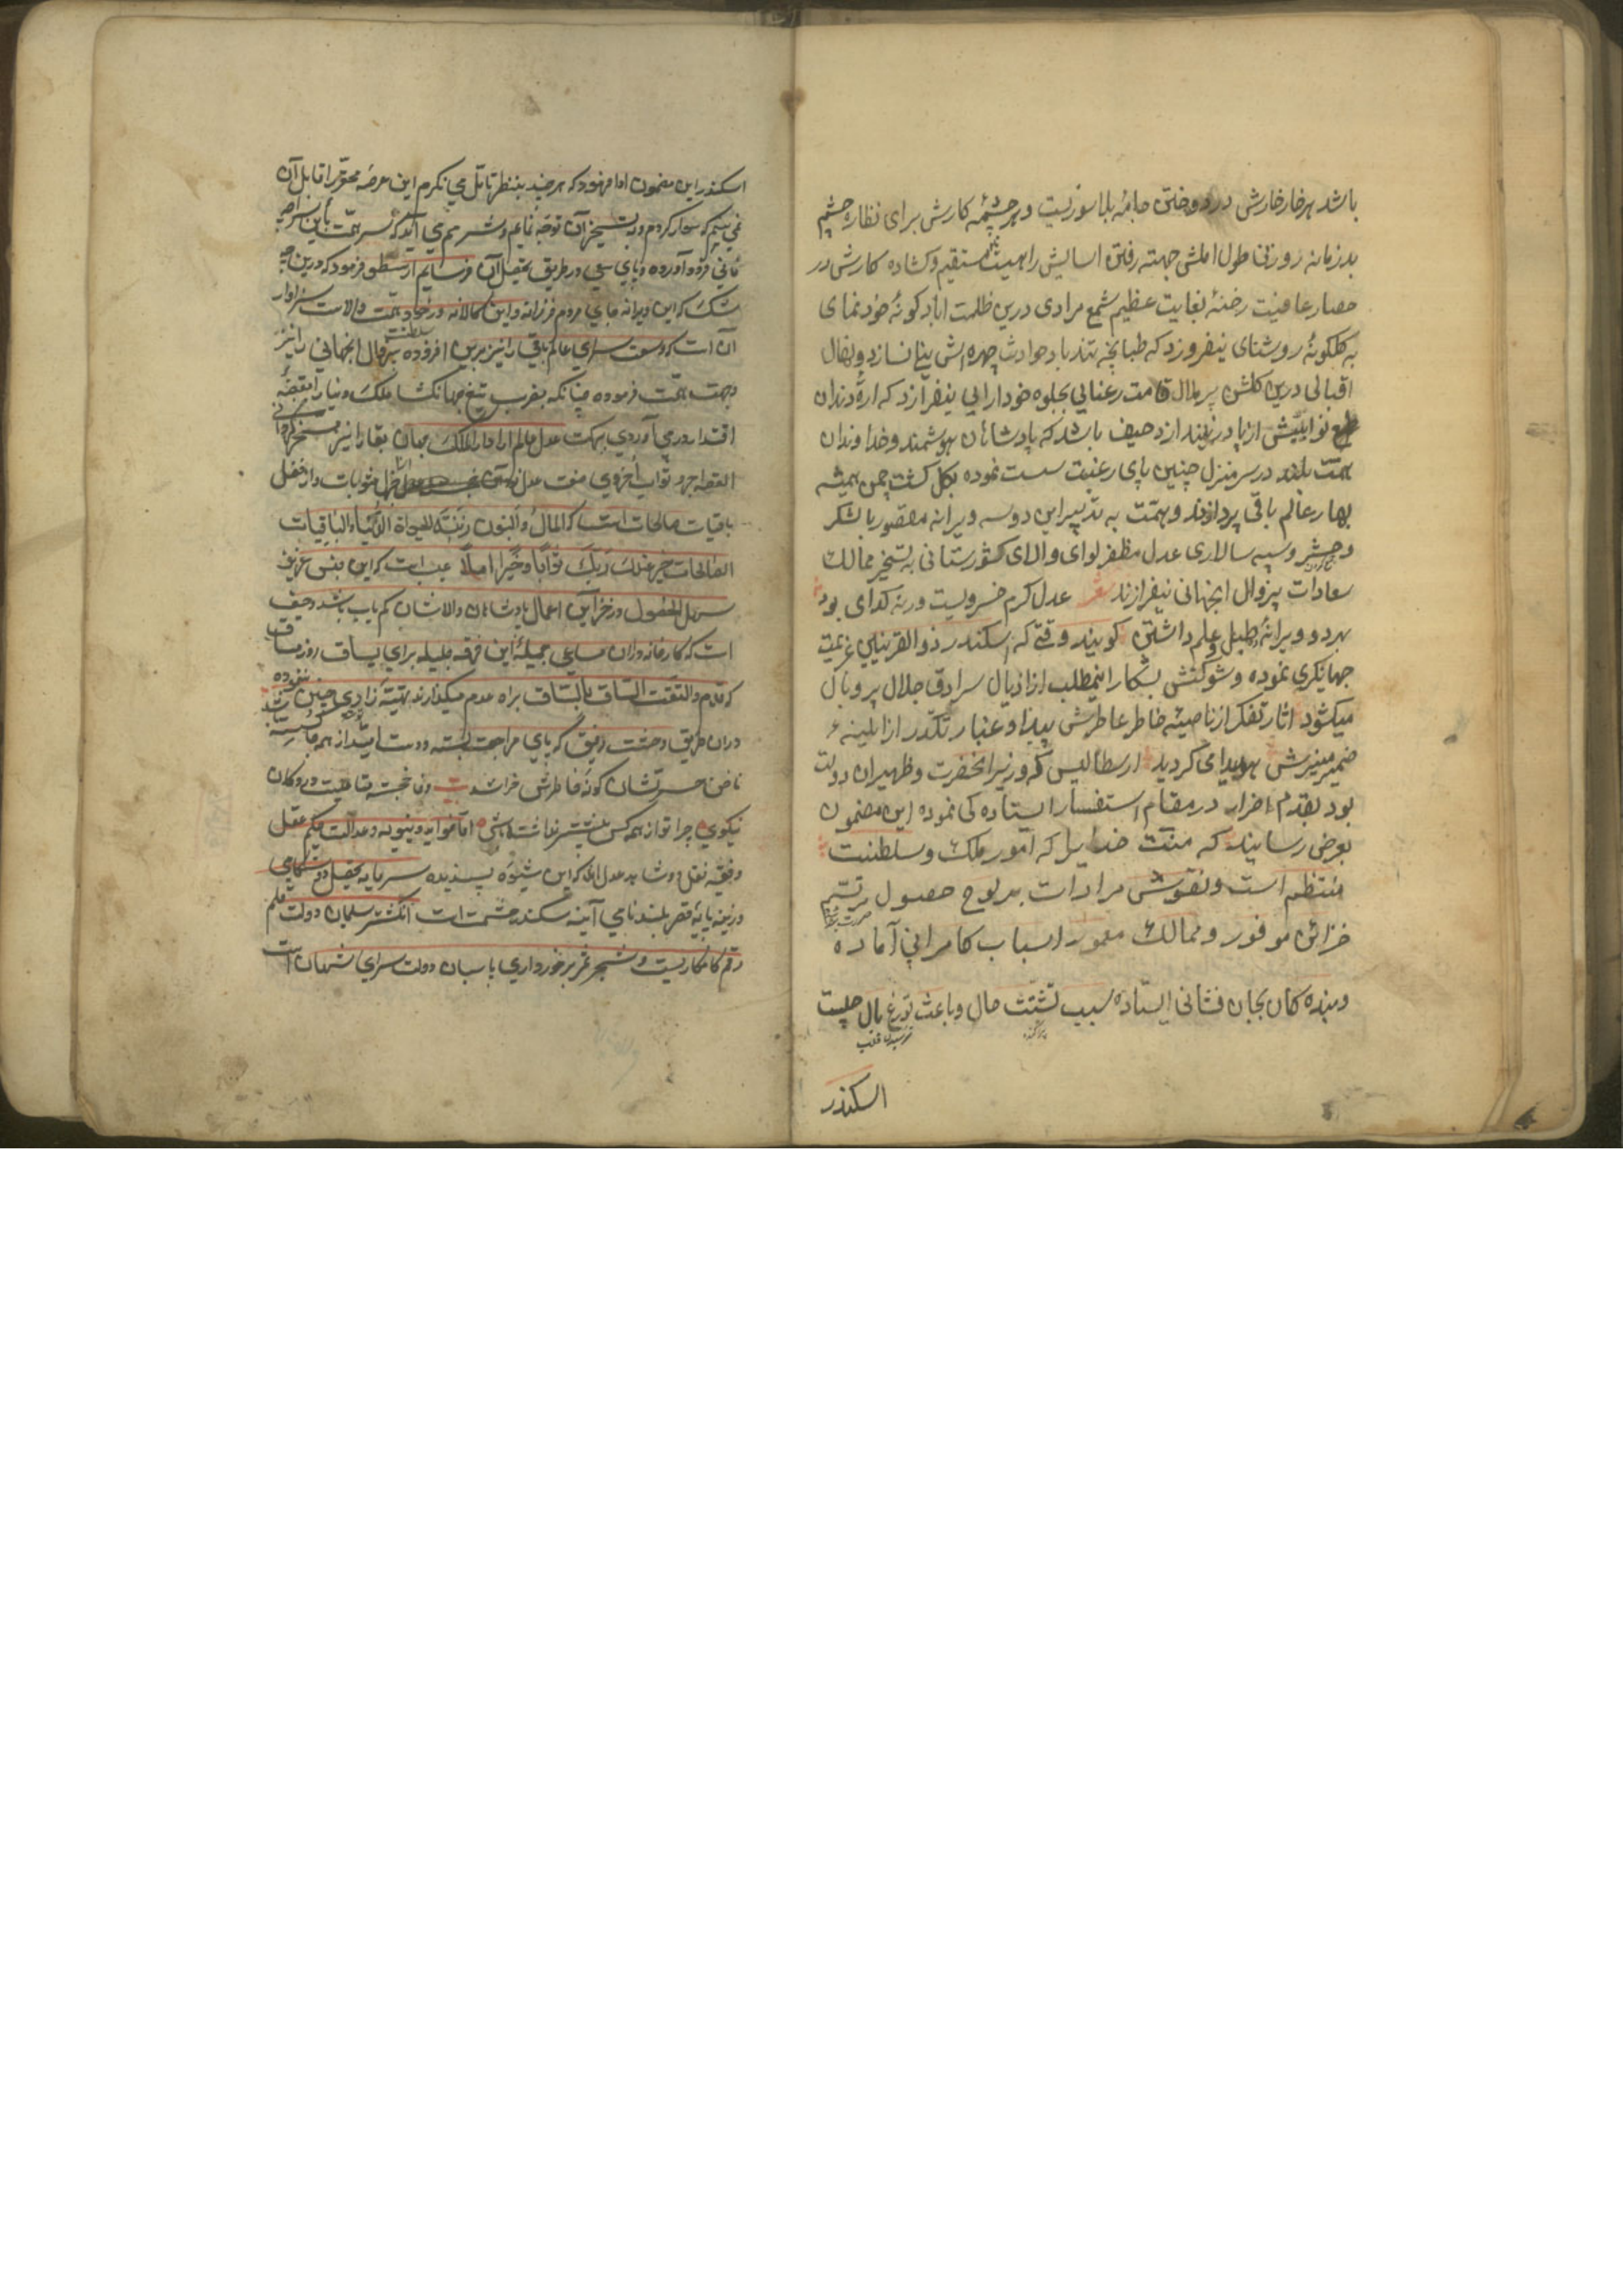 باشد هر خار خارش در دوختن جامهٔ بلا سوزنیست و هر چشمهٔ کارش برای نظارهٔ چشم
بد زمانه روزنی طول املش جهته رفتن اسایش راهیست مستقیم و کشاده کارش در
حصار عافیت رخنهٔ بغایت عظیم شمع مرادی درین ظلمت اباد کونهٔ خود نمای
به کلکونهٔ روشنای نیفروزد که طبانچه تند باد حوادث چهره‌اش نیلی نسازد و نهال
اقبالی درین کلشن پر ملال قامت رعنایی بجلوه خودارایی نیفرازد که ارهٔ دندان
نوایبش از پا در نیندازد حیف باشد که پادشاهان هوشمند و خداوندان
همت بلند در سر منزل چنین پای رغبت سست نموده بکل کشت چمن همیشه
بهار عالم باقی پردازند و همت به تدبیر این دو سه ویرانه مقصور با لشکر
و حشر و سپه سالاری عدل مظفر لوای والای کشورستانی به تسخیر ممالک
سعادات بیزوال انجهانی نیفرازند شعر عدل کرم خسرویست ورنه کدای بود
بهر دو ویرانهٔ طبل و علم داشتن کویند وقتی که اسکندر ذو القرنین عزیمت
جهانکیری نموده و شوکتش بشکار اینمطلب از اذیال سرادق جلال پر و بال
میکشود اثار تفکر از ناصیهٔ خاطر عاطرش پیدا و غبار تکدر از ایینه
ضمیر منیرش هویدای کردید ارسطالیس که وزیر انحضرت و ظهیر ان دولت
بود بقدم احزار در مقام استفسار ایستاده کی نموده این مضمون
بعرض رسانید که منت خدایرا که امور ملک و سلطنت
منتظم است و نقوش مرادات بر لوح حصول مرتسم
خزائن موفور و ممالک معمور اسباب کامرانی آماده
و بنده کان بجان فشانی ایستاده سبب تشتت حال و باعث توزع بال چیست
پراکنده
اسکندر
اسکندر این مضمون ادا فرمود که هر چند بنظر تامل می نکرم این عرصه محقر را قابل آن
نمی بینم که سوار کردم و به تسخیر آن توجه نمایم و شرمم می آید که سر همت باین
فانی فرود آورده و پای سعی در طریق تحصیل آن فرسایم ارسطو فرمود که درین چه
شک که این ویرانه جای مردم فرزانه و این کالانه در خور همت والاست سزاوار
آن است که وسعت سرای عالم باقی را نیز برین افزوده سلطنت بیزوال انجهانی را نیز
وجهت همت فرموده چنانکه بضرب تیغ جهانکشا ملک دنیا را بقبضه
اقتدار در می آوردی ببرکت عدل عالم ارا دار الملک جهان بقا را نیز مسخر کردانی
القصه اجر و ثواب اخروی صفت عدل
باقیات صالحات است که المال و البنون زینة الحیاة الدنیا و الباقیات
الصالحات خیر عند ربک ثوابا و خیر املا عجب است که این جنس عزیز
سهل الحصول در خزاین اعمال پادشاهان والاشان کم یاب باشد و حیف
است که کارخانه داران مساعی جمیلهٔ این فرقه جلیله برای یساق روز مساق
که قدم و التفت الساق بالساق براه عدم میکذارند تهیه زادی چنین ننموده
دران طریق وحشت رفیق که پای مراجعت بسته و دست امید از همه جا کسسته
ناخن حسرتشان کونه خاطرش خراشد
نیکویی چرا تو از همه کس بیشتر نداشته باشی اما فواید دنیویه و عدالت بحکم عقل
و فتوی نقل دو شاهد عدل اند که این شیوه پسندیده سرمایه تحصیل دوستکامی
و زینه پایهٔ قصر بلند نامی آینه سکندر حشمت است انکشتر سلیمان دولت قلم
رقم کامکاریست و شجر ثمر برخورداری پاسبان دولت سرای شهان است